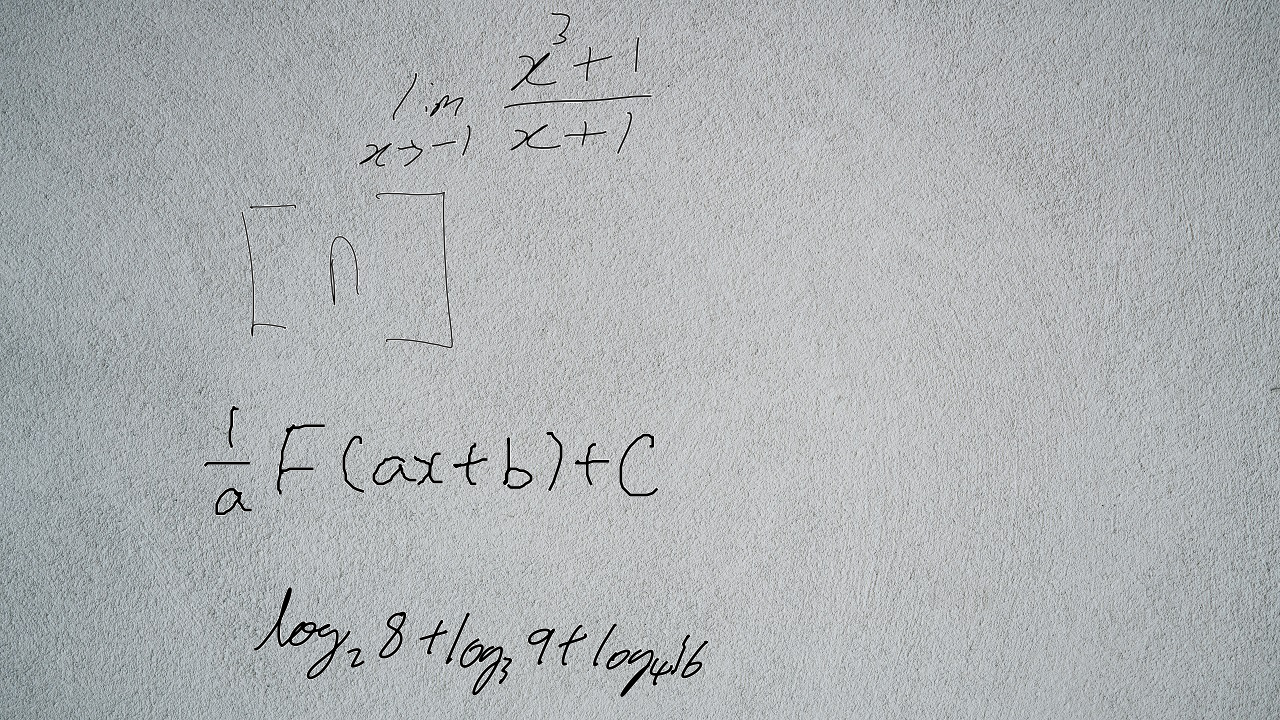 \lim_{x \to -1} \frac{x^3+1}{x+1}
[n]
\frac{1}{a} F(ax+b)+C
\log_2 8 + \log_3 9 + \log_4 16